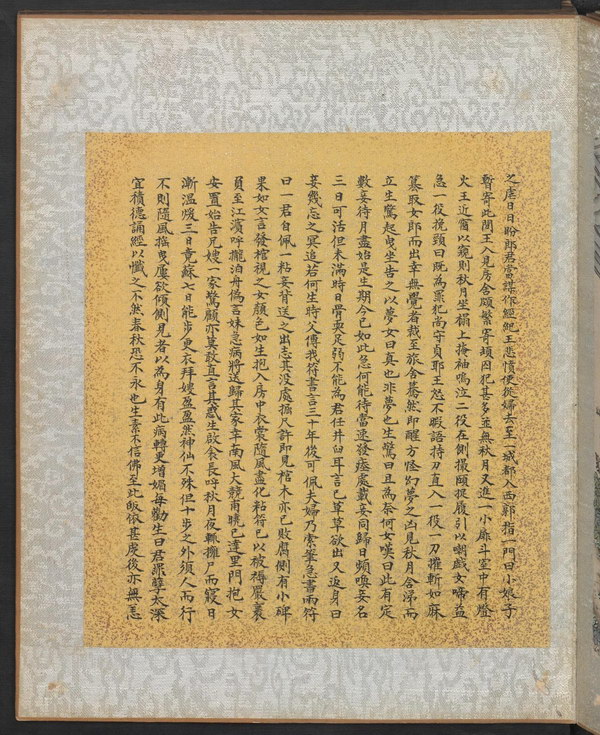 之虐日日盼郎君當謀作經紀王悲憤便從婦去至一城都入西郭指一門曰小娘子
暫寄此間王入見房舍頗繁寄頓囚犯甚多並無秋月又進一小扉斗室中有燈
火王近窗以窺則秋月坐榻上掩袖嗚泣二役在側撮頤捉履引以嘲戲女啼益
急一役挽頸曰既為罪犯尚守貞耶王怒不暇語持刀直入一役一刀摧斬如麻
篡取女郎而出幸無覺者裁至旅舍驀然即醒方怪幻夢之凶見秋月含涕而
立生驚起曳坐告之以夢女曰真也非夢也生驚曰且為奈何女嘆曰此有定
數妾待月盡始是生期今已如此急何能待當速發瘞處載妾同歸日頻喚妾名
三日可活但未滿時日骨耎足弱不能為君任井臼耳言已草草欲出又返身曰
妾幾忘之冥追若何生時父傳我符書言三十年後可佩夫婦乃索筆急書兩符
曰一君自佩一粘妾背送之出志其沒處掘尺許即見棺木亦已敗腐側有小碑
果如女言發棺視之女顏色如生抱入房中衣裳隨風盡化粘符已以被褥嚴裹
負至江濱呼攏泊舟偽言妹急病將送歸其家幸南風大競甫曉已達里門抱女
安置始告兄嫂一家驚顧亦莫敢直言其惑生啟衾長呼秋月夜輒擁尸而寢日
漸溫煖三日竟蘇七日能步更衣拜嫂盈盈然神仙不殊但十步之外須人而行
不則隨風搖曳屢欲傾側見者以為身有此病轉更增媚每勸生曰君罪孽太深
宜積德誦經以懺之不然春秋恐不永也生素不信佛至此皈依甚虔後亦無恙